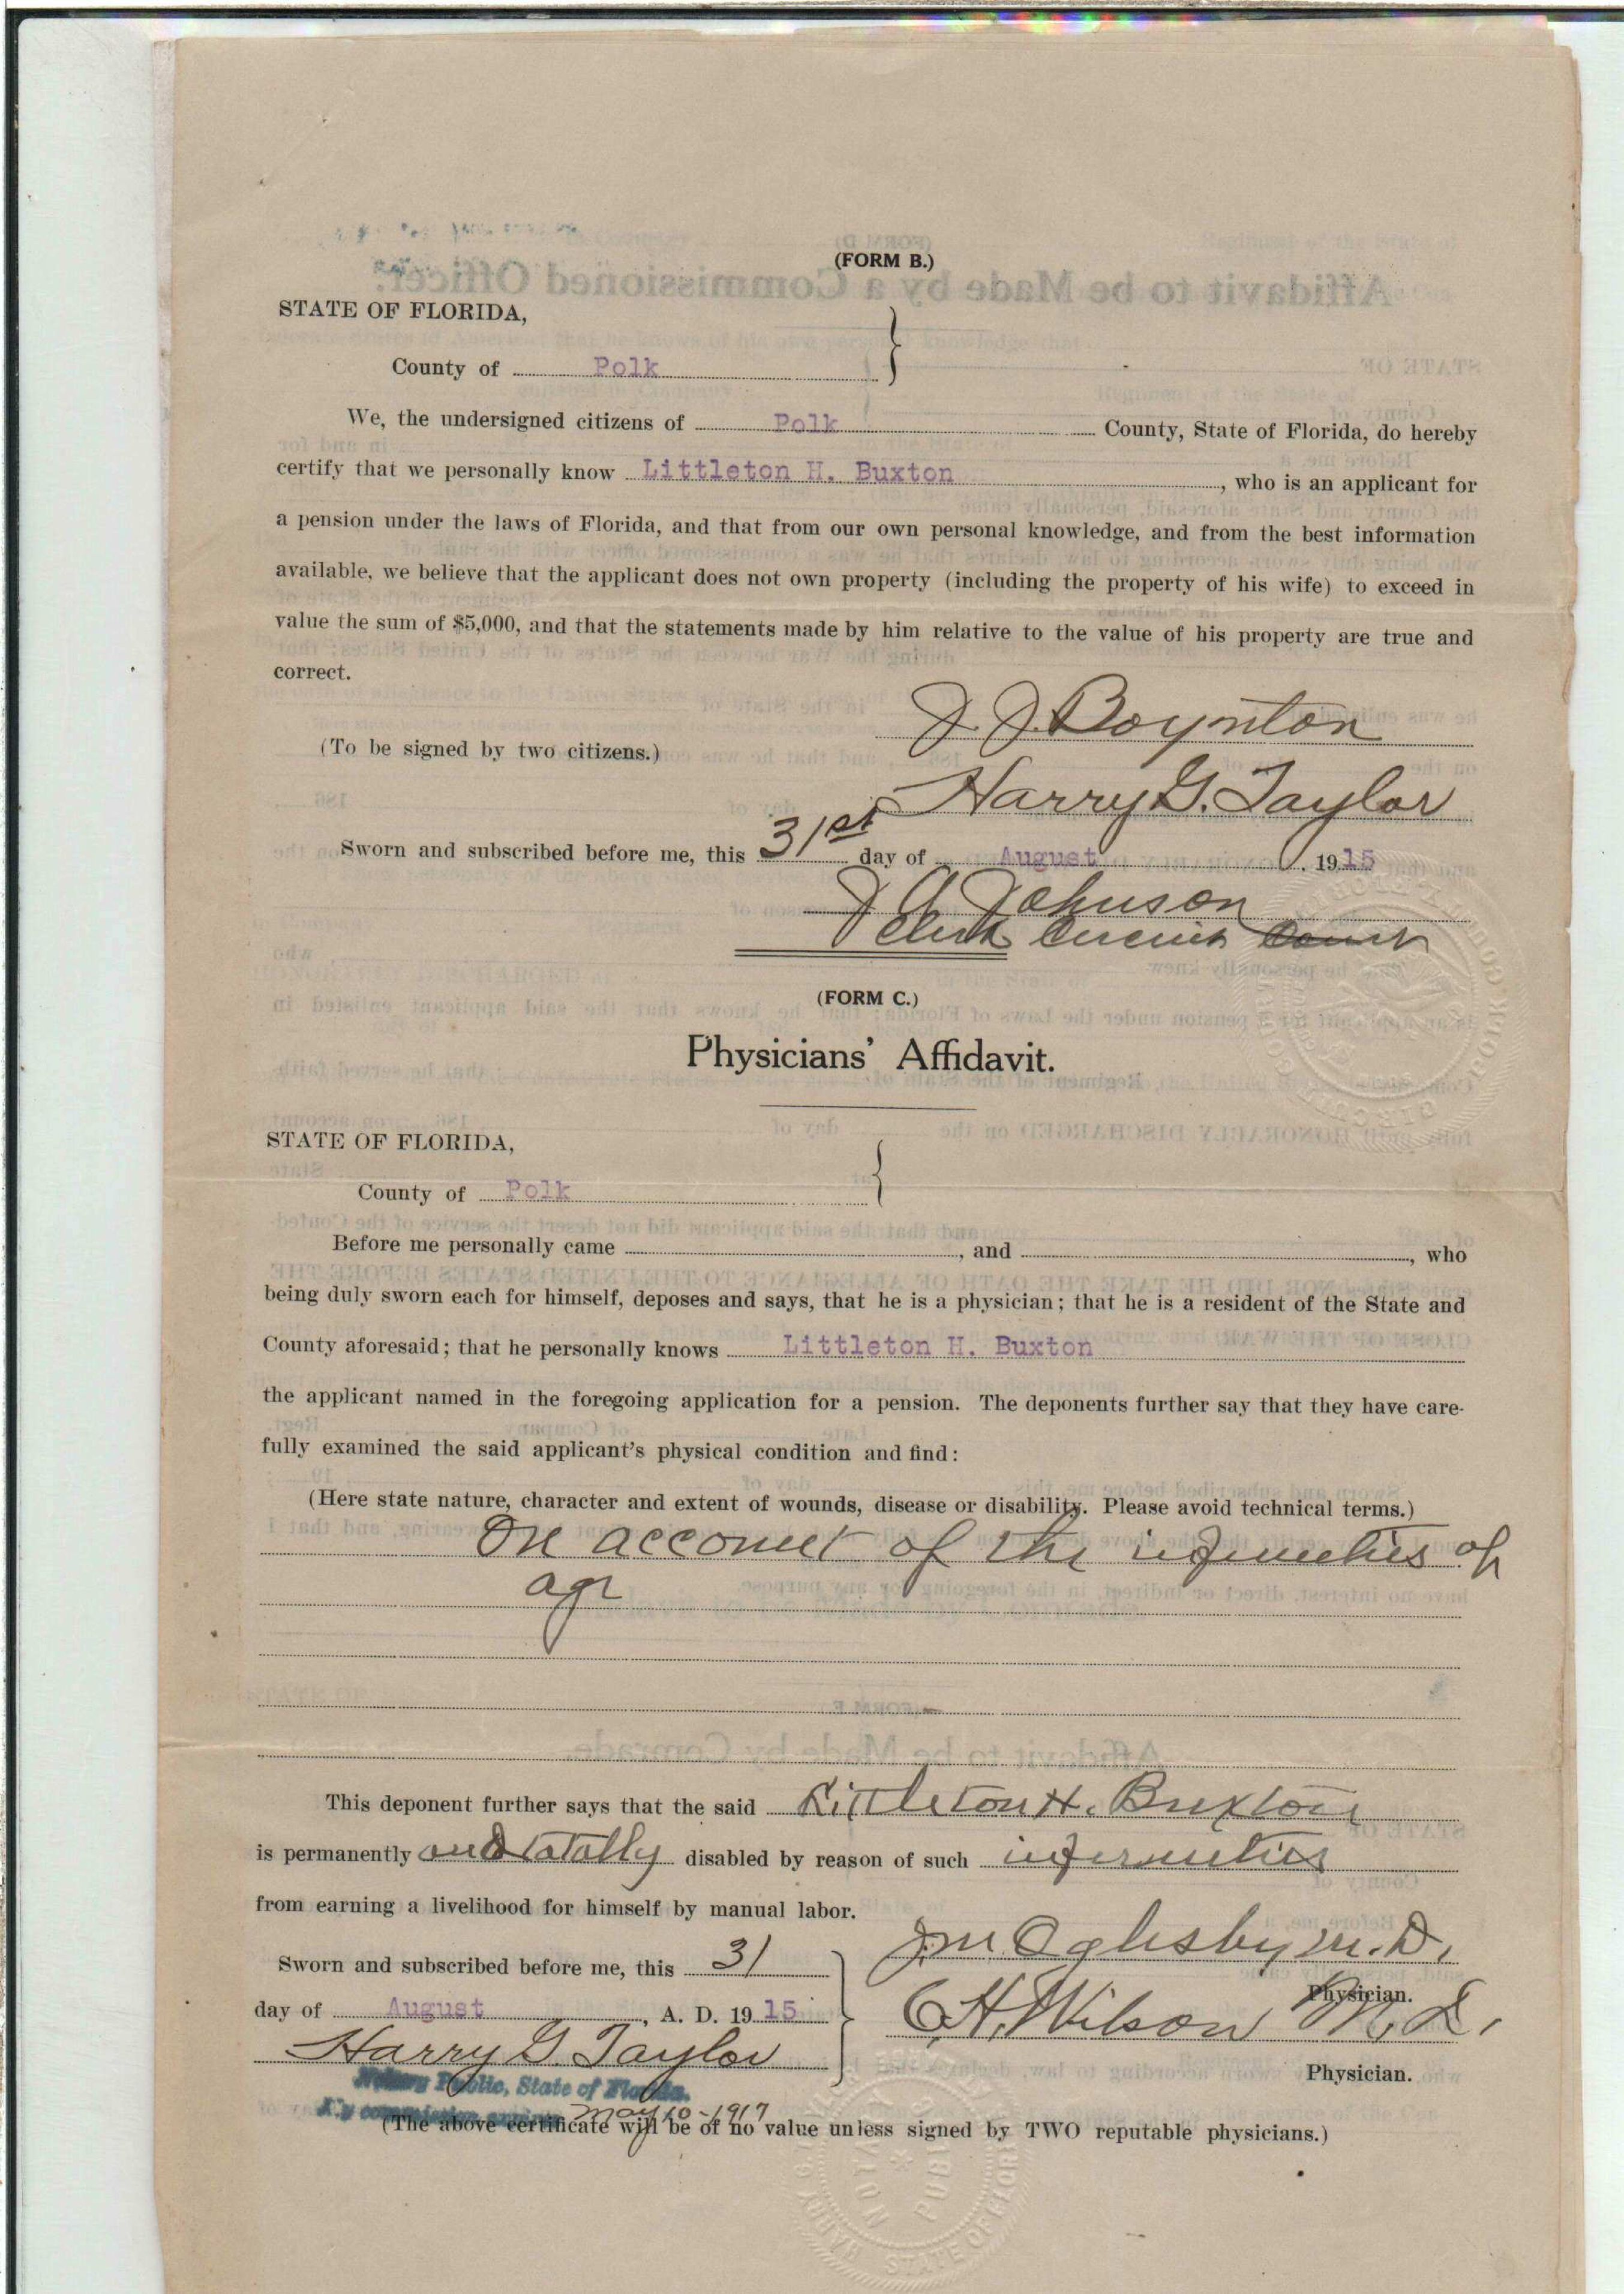 (FORM B.)
STATE OF FLORIDA,
County of Polk
We, the undersigned citizens of Polk County, State of Florida, do hereby
certify that we personally know Littleton H. Buxton, who is an applicant for
a pension under the laws of Florida, and that from our own personal knowledge, and from the best information
available, we believe that the applicant does not own property (including the property of his wife) to exceed in
value the sum of $5,000, and that the statements made by him relative to the value of his property are true and
correct.
J. J. Boynton
(To be signed by two citizens.)
Harry G. Taylor
Sworn and subscribed before me, this 31st day of August, 1915
J A Johnson
Clerk Circuit Court
(FORM C.)
Physicians' Affidavit.
STATE OF FLORIDA,
County of Polk
Before me personally came , and , who
being duly sworn each for himself, deposes and says, that he is a physician; that he is a resident of the State and
County aforesaid; that he personally knows Littleton H. Buxton
the applicant named in the foregoing application for a pension. The deponents further say that they have care-
fully examined the said applicant's physical condition and find:
(Here state nature, character and extent of wounds, disease or disability. Please avoid technical terms.)
On account of the infirmities of
age
This deponent further says that the said Littleton H. Buxton
is permanently and totally disabled by reason of such infirmities
from earning a livelihood for himself by manual labor.
J M Oglesby M.D.
Sworn and subscribed before me, this 31
Physician.
day of August, A. D. 1915
C. H. Wilson M. D.
Harry G. Taylor
Physician.
Notary Public, State of Florida.
My commission expires May 10-1917
(The above certificate will be of no value unless signed by TWO reputable physicians.)